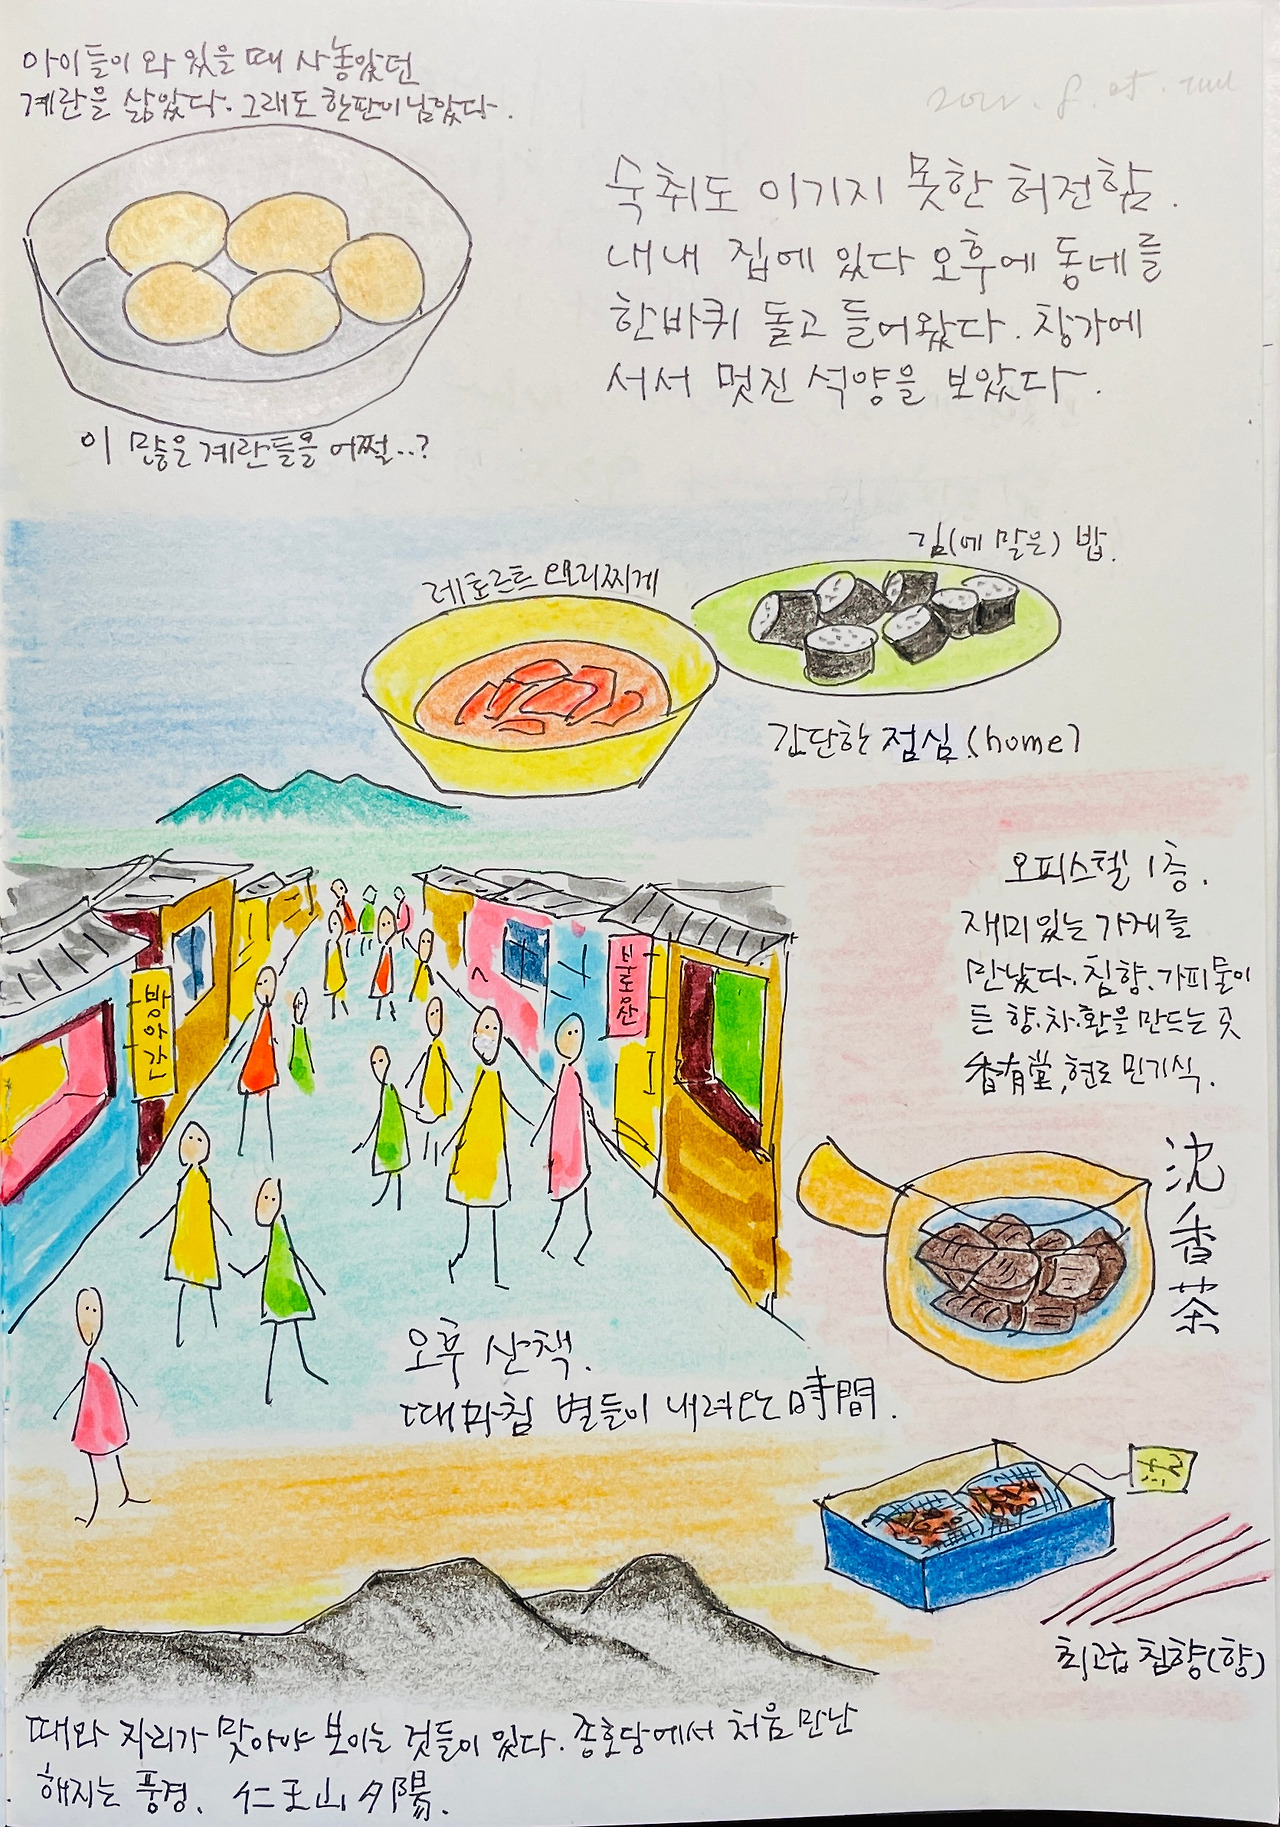 아이들이 와 있을 때 사놓았던
계란을 삶았다. 그래도 한판이 남았다.
숙취도 이기지 못한 허전함.
내내 집에 있다 오후에 동네를
한바퀴 돌고 들어왔다. 창가에
서서 멋진 석양을 보았다.
이 많은 계란들을 어쩔..?
김(에 말은) 밥.
레토르트 오리찌게
간단한 점심.(home)
오피스텔 1층.
재미있는 가게를
만났다. 침향. 가피물이
든 향·차·환을 만드는 곳
香有堂, 현로 민기식.
방아간
부동산
沈香茶
오후 산책.
때마침 별들이 내려오는 時間.
沈
최고급 침향(향)
때와 자리가 맞아야 보이는 것들이 있다. 종로당에서 처음 만난
해지는 풍경. 仁王山 夕陽.